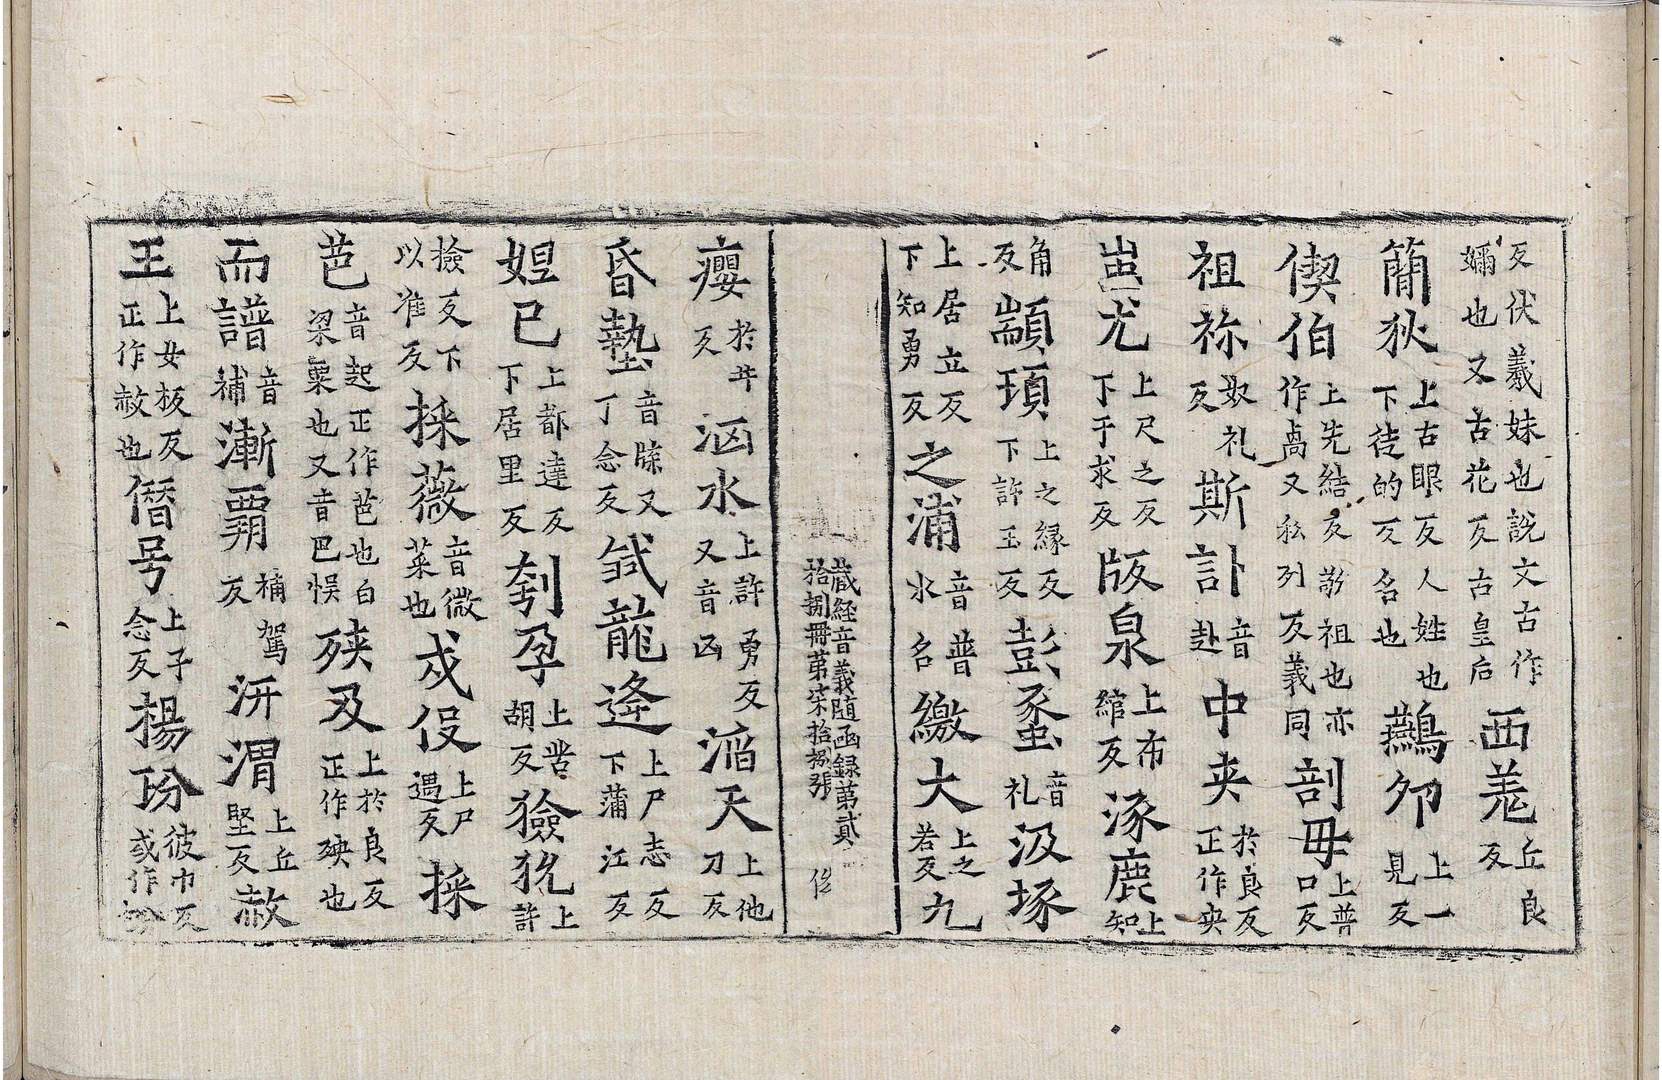 反伏羲妹也說文古作嫋也又古花反古皇后西羌丘良反
簡狄上古眼反人姓也下徒的反名也鷰夘上一見反
偰伯上先結反卨祖也亦作卨又私列反義同剖毋上普口反
祖祢奴礼反斯訃音赴中夾於良反正作央
蚩尤上尺之反下于求反版泉上布綰反涿鹿上知
角反顓頊上之緣反下許玉反彭蠡音礼汲塚
上居立反下知勇反之浦音普水名繳大上之若反九
藏経音義随函録第貳拾捌冊第宋拾捌張
癭於井反洶水上許勇反又音凶滔天上他刀反
昏墊音牒又丁念反弑龍逄上尸志反下蒲江反
妲己上都達反下居里反刳孕上苦胡反獫狁上許
撿反下以准反採薇音微菜也戍役上尸遇反採
芑音起正作芑也白梁粟也又音巴悮殃及上於良反正作殃也
而譜音補漸覇補駕反汧渭上丘堅反赧
王上女板反正作赧也僭号上子念反楊玢彼巾反或作